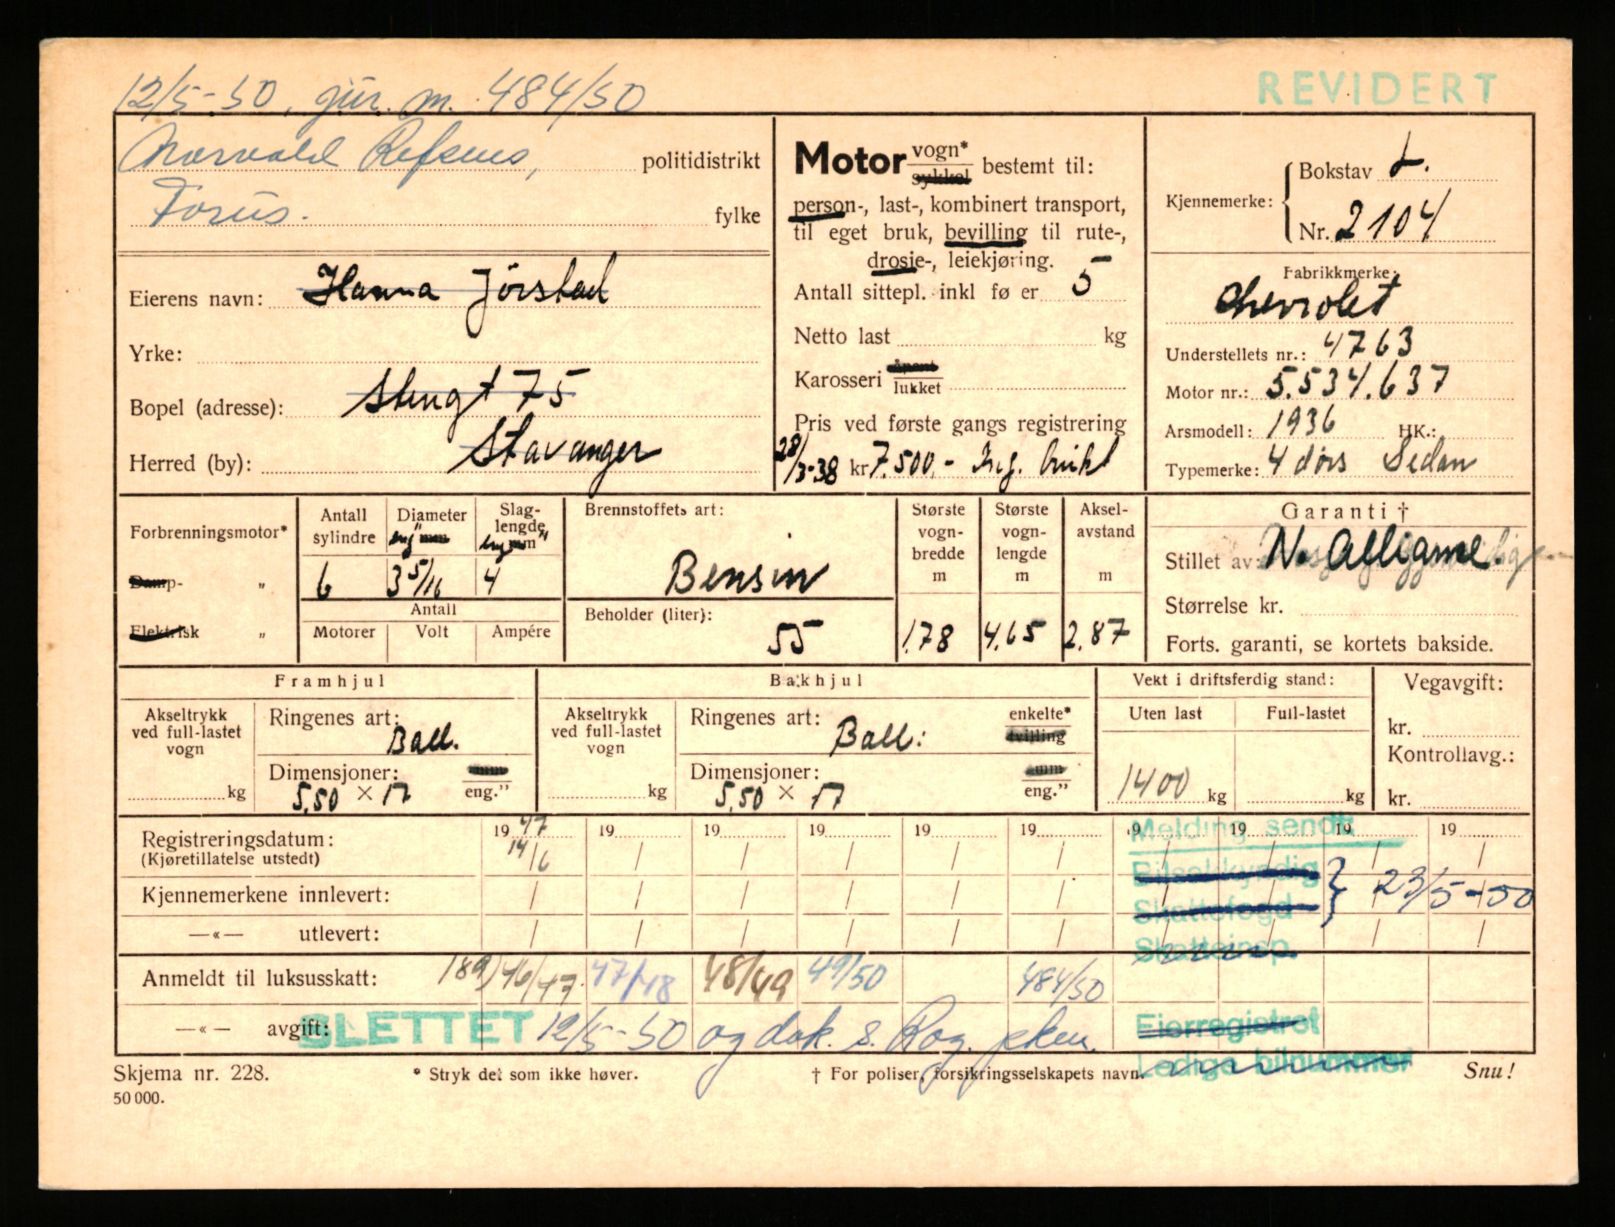 12/5-50, m. 484/50
REVIDERT
Refsnes, politidistrikt
Forus. fylke
Motor vogn* sykkel bestemt til:
person-, last-, kombinert transport,
til eget bruk, bevilling til rute-,
drosje-, leiekjøring.
Antall sittepl. inkl fø er 5
Netto last kg
Karosseri åpent lukket
Pris ved første gangs registrering
28/3-38 kr 7.500.- brukt
Kjennemerke: Bokstav L.
Nr. 2104
Fabrikkmerke:
Chevrolet
Understellets nr.: 4763
Motor nr.: 5.534.637
Arsmodell: 1936 HK.:
Typemerke: 4 dørs Sedan
Eierens navn: Hanna Jørstad
Yrke:
Bopel (adresse): 75
Herred (by): Stavanger
Forbrenningsmotor*
Damp- „
Elektrisk „
Antall sylindre
6
Diameter eng" mm
3 5/16
Slag-lengde eng" mm
4
Antall
Motorer Volt Ampére
Brennstoffets art:
Bensin
Beholder (liter):
55
Største vogn-bredde m
1.78
Største vogn-lengde m
4.65
Aksel-avstand m
2.87
Garanti †
Stillet av:
Størrelse kr.
Forts. garanti, se kortets bakside.
Framhjul
Akseltrykk ved full-lastet vogn
kg
Ringenes art:
Ball.
Dimensjoner: mm
5,50 × 17 eng."
Bakhjul
Akseltrykk ved full-lastet vogn
kg
Ringenes art: enkelte*
Ball. tvilling
Dimensjoner: mm
5,50 × 17 eng."
Vekt i driftsferdig stand:
Uten last Full-lastet
1400 kg kg
Vegavgift:
kr.
Kontrollavg.:
kr.
Registreringsdatum: 1947 19 19 19 19 19 19 19 19 19
(Kjøretillatelse utstedt) 14/6 / / / / / / / / /
Melding sendt
Kjennemerkene innlevert: / / / / / / / / / /
Bilsakkyndig
Skattefogd } 23/5-50
—«— utlevert: / / / / / / / / / /
Skatteinsp.
Anmeldt til luksusskatt: 189/46/47 47/48 48/49 49/50 484/50
—«— avgift: SLETTET 12/5-50 og dok. s. Rog.
Eierregistret
Ledige bilnummer
Skjema nr. 228. * Stryk det som ikke høver. † For poliser, forsikringsselskapets navn. Snu!
50 000.